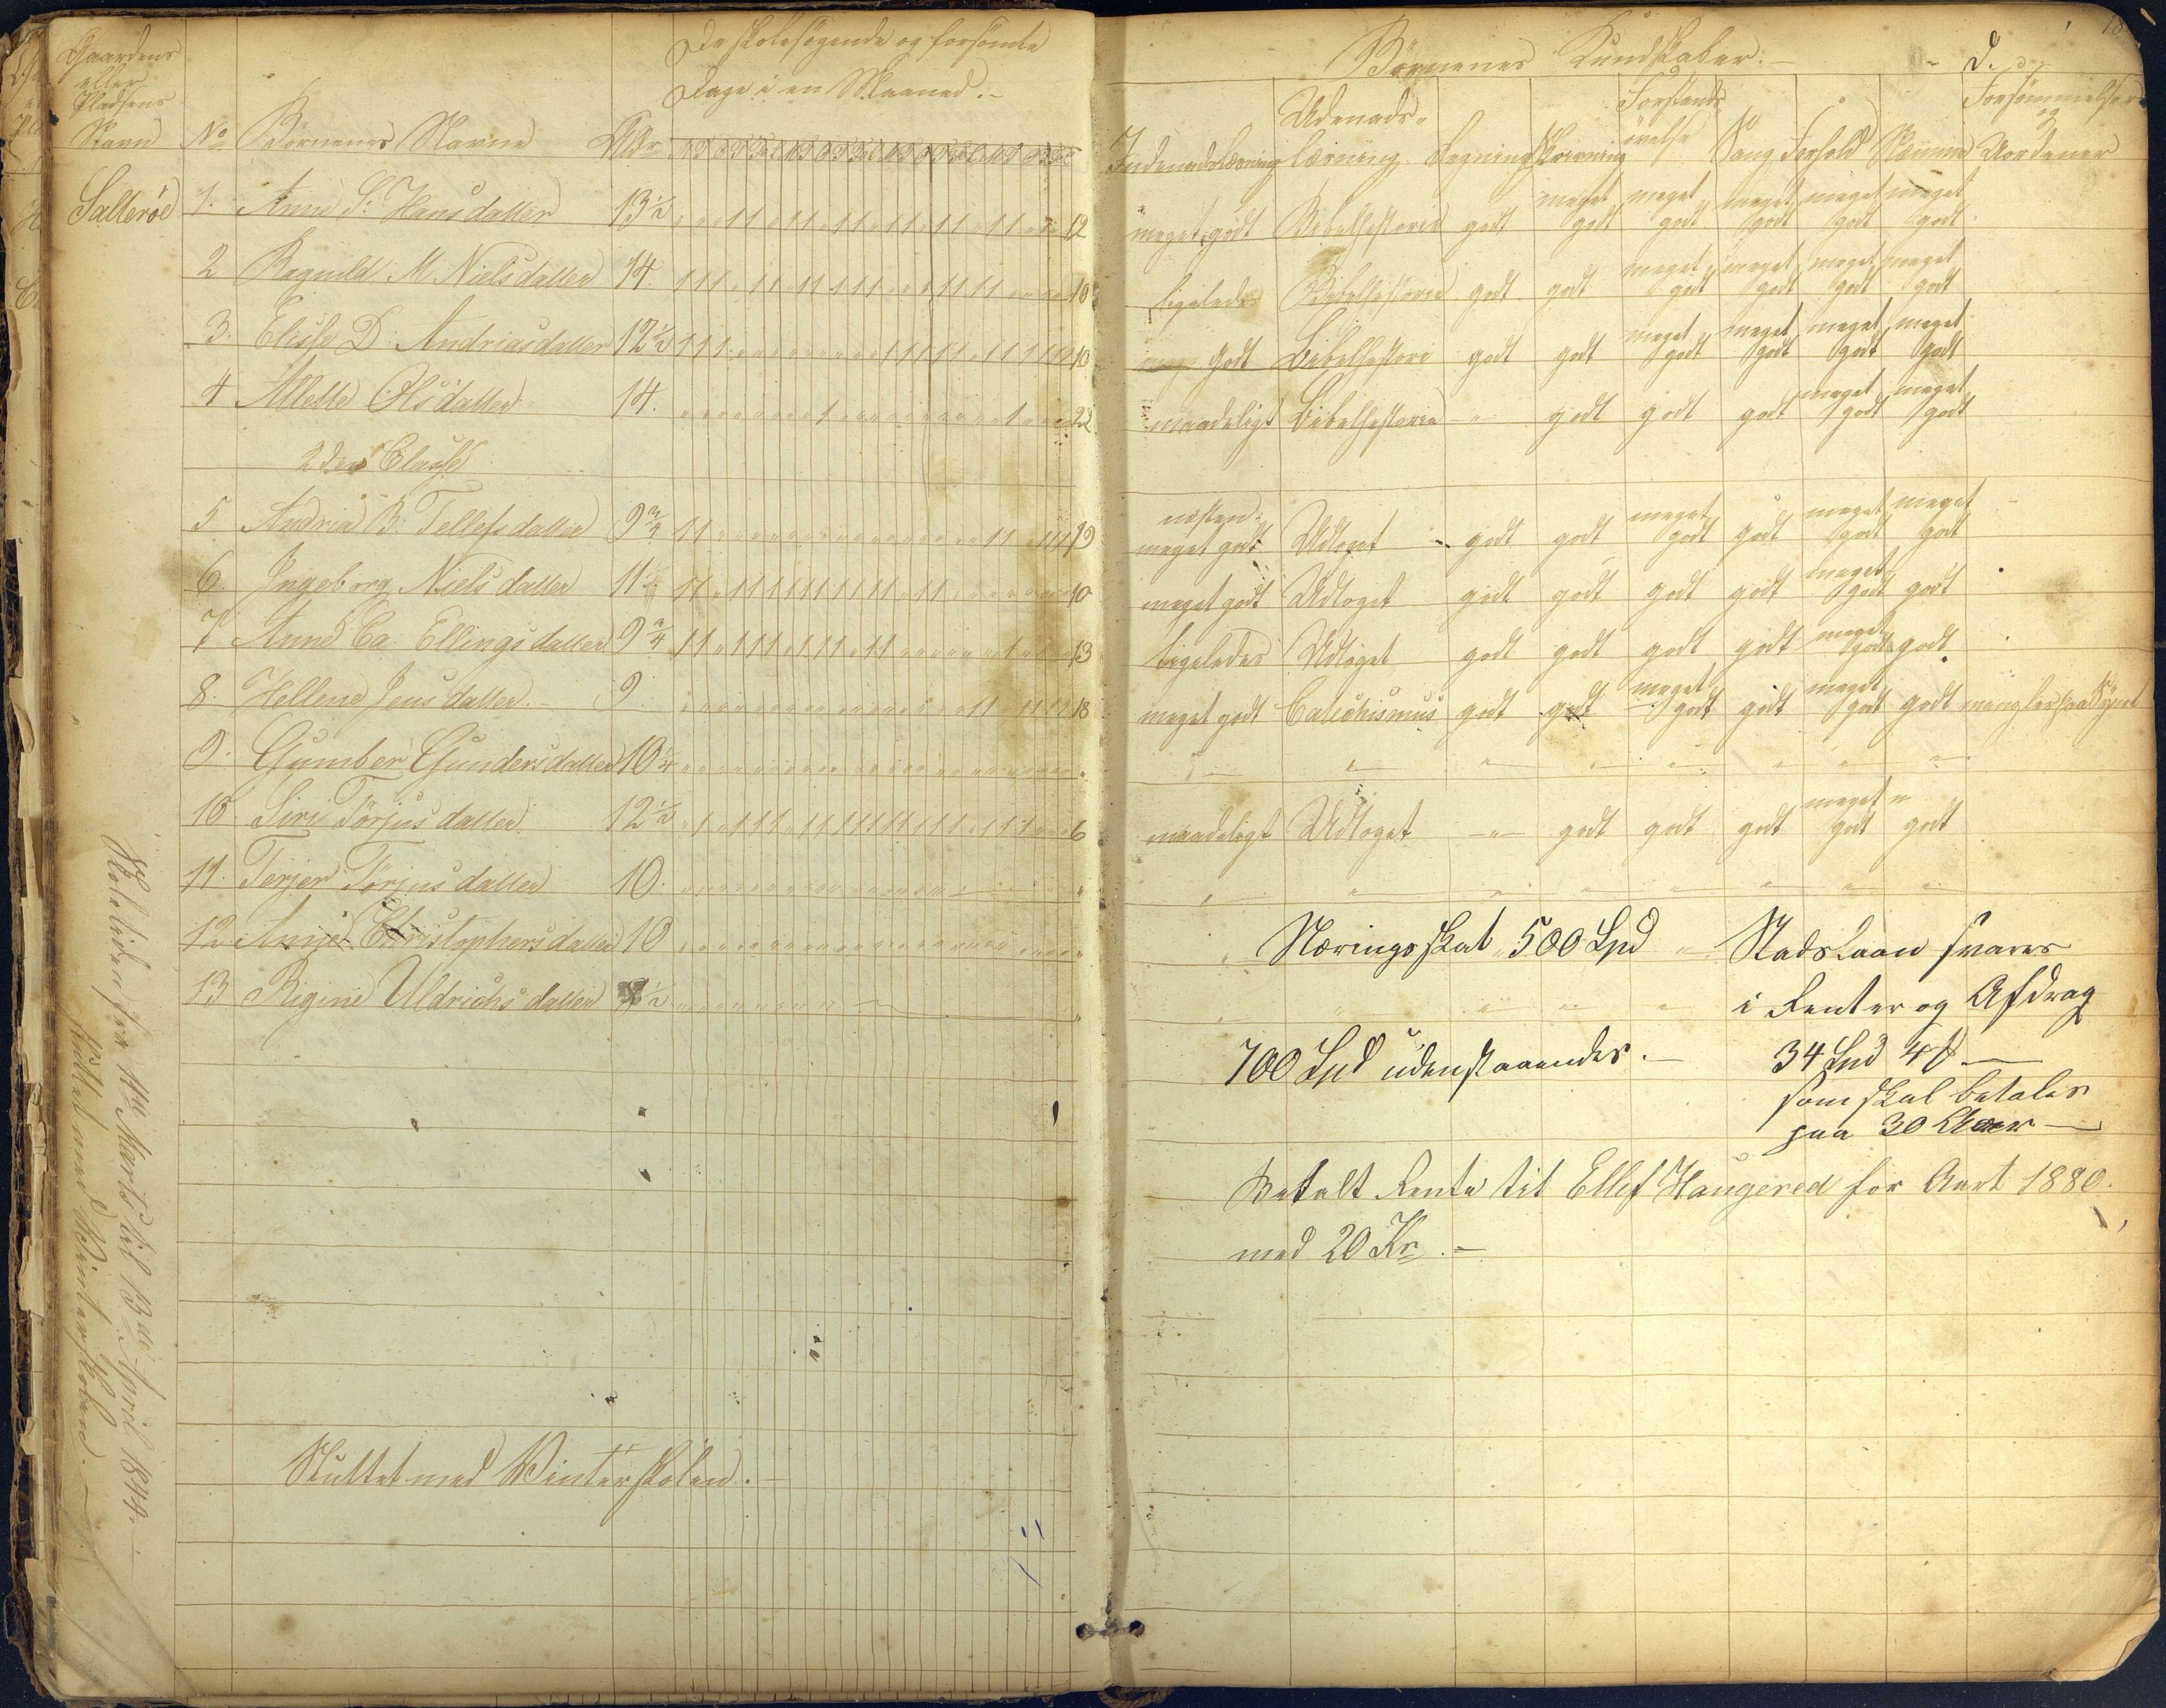 Gaardens
eller
Pladsens
Navn
No Börnenes Navne
Alder
De skolesögende og forsömte
Dage i en Maaned.-
Salteröe 1. Anne S. Hansdatter 13½ 12
2 Ragnild M. Nielsdatter 14. 10
3. Elisse D. Andriasdatter 12½ 10
4 Allette Olsdatter 14. 22
2den Classe
5 Andria B. Tellefsdatter 9¾ 19
6. Ingeborg Nielsdatter 11 10
7 Anne Ca. Ellingsdatter 9¾ 13
8. Hellene Jensdatter.- 9 18
9. Gumber Gundersdatter 10¼
10. Siri Törjusdatter 12½ 6
11. Terjer Törjusdatter 10.
12 Anne Christophersdatter 10
13 Rigine Uldrichsdatter 8½
Sluttet med Vinterskolen.-
Skoletiden fra 11te Marts til 13de April 1844.-
sluttet med Vinterskolen.-
Börnenes Kundskaber.-
d.
Indenadslæsning
Udenads-
læring
Regning
Skrivning
Forstands
övelse
Sang
Forhold
Nemme
Forsömmelser
og
Uordener
meget godt Bibelhistorie godt meget godt meget godt meget godt meget godt meget godt
ligeledes Bibelhistorie godt godt meget godt meget godt meget godt meget godt
godt Bibelhistori godt godt meget godt meget godt meget godt meget godt
maadeligt Bibelhistorie -"- godt godt godt meget godt meget godt
næsten
meget godt Udtoget godt godt meget godt godt meget godt meget godt
meget godt Udtoget godt godt godt godt meget godt godt
ligeledes Udtoget godt godt godt godt meget godt godt
meget godt Catechismus godt godt meget godt godt meget godt godt mangler paa Synet
maadeligt Udtoget -"- godt godt godt meget godt godt
Næringsskat 500 Spd
Stadslaan svares
i Renter og Afdrag
700 Spd udenstaaende.-
34 Spd 4 ß
som skal betales
paa 30 Aar
Betalt Rente til Ellef Haugered for Aaret 1880.
med 20 Kr.-